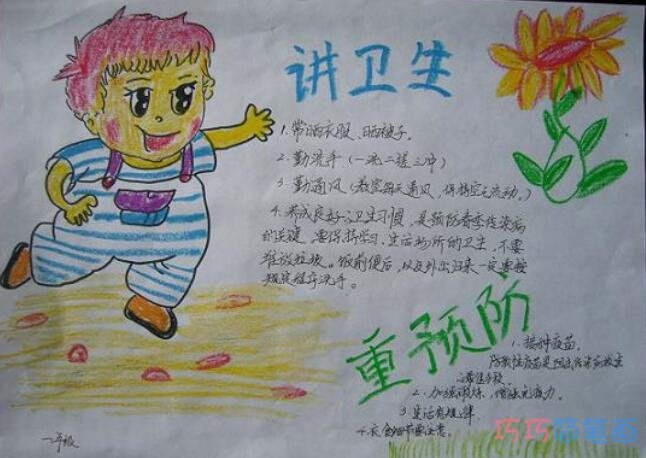 讲卫生
1.常晒衣服、晒被子。
2.勤洗手(一洗二搓三冲)
3.勤通风(教室每天通风,保持空气流动。)
4.养成良好的卫生习惯,是预防春季传染病
的关键,要保持学习、生活场所的卫生,不要
堆放垃圾。饭前便后,以及外出归来一定要按
规定程序洗手。
重预防
1.接种疫苗。
2.加强锻炼,增强免疫力。
3.生活有规律
4.衣食细节要注意。
一年级
巧巧简笔画